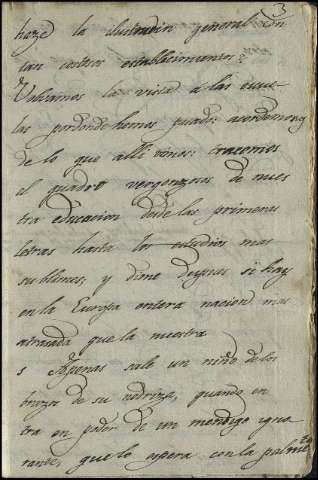 3
haze la ilustracion general con
tan costosos establecimientos?
Volvamos la vista a las escue-
las por donde hemos pasado: acordemonos
de lo que alli vimos: tracemos
el quadro vergonzoso de nues
tra educacion desde las primeras
letras hasta los estudios mas
sublimes, y dime despues si hay
en la Europa entera nacion mas
atrasada que la nuestra
s Apenas sale un niño de los
brazos de su nodriza, quando en
tra en poder de un mendigo igno
rante, que lo espera con la palme
ta